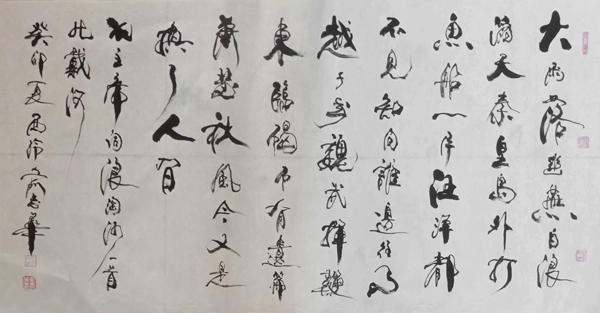 大雨落幽燕白浪
滔天秦皇島外打
魚船一片汪洋都
不見知向誰邊往事
越千年魏武揮鞭
東臨碣石有遺篇
蕭瑟秋風今又是
換了人間
毛主席詞浪淘沙一首
北戴河
癸卯夏西泠華